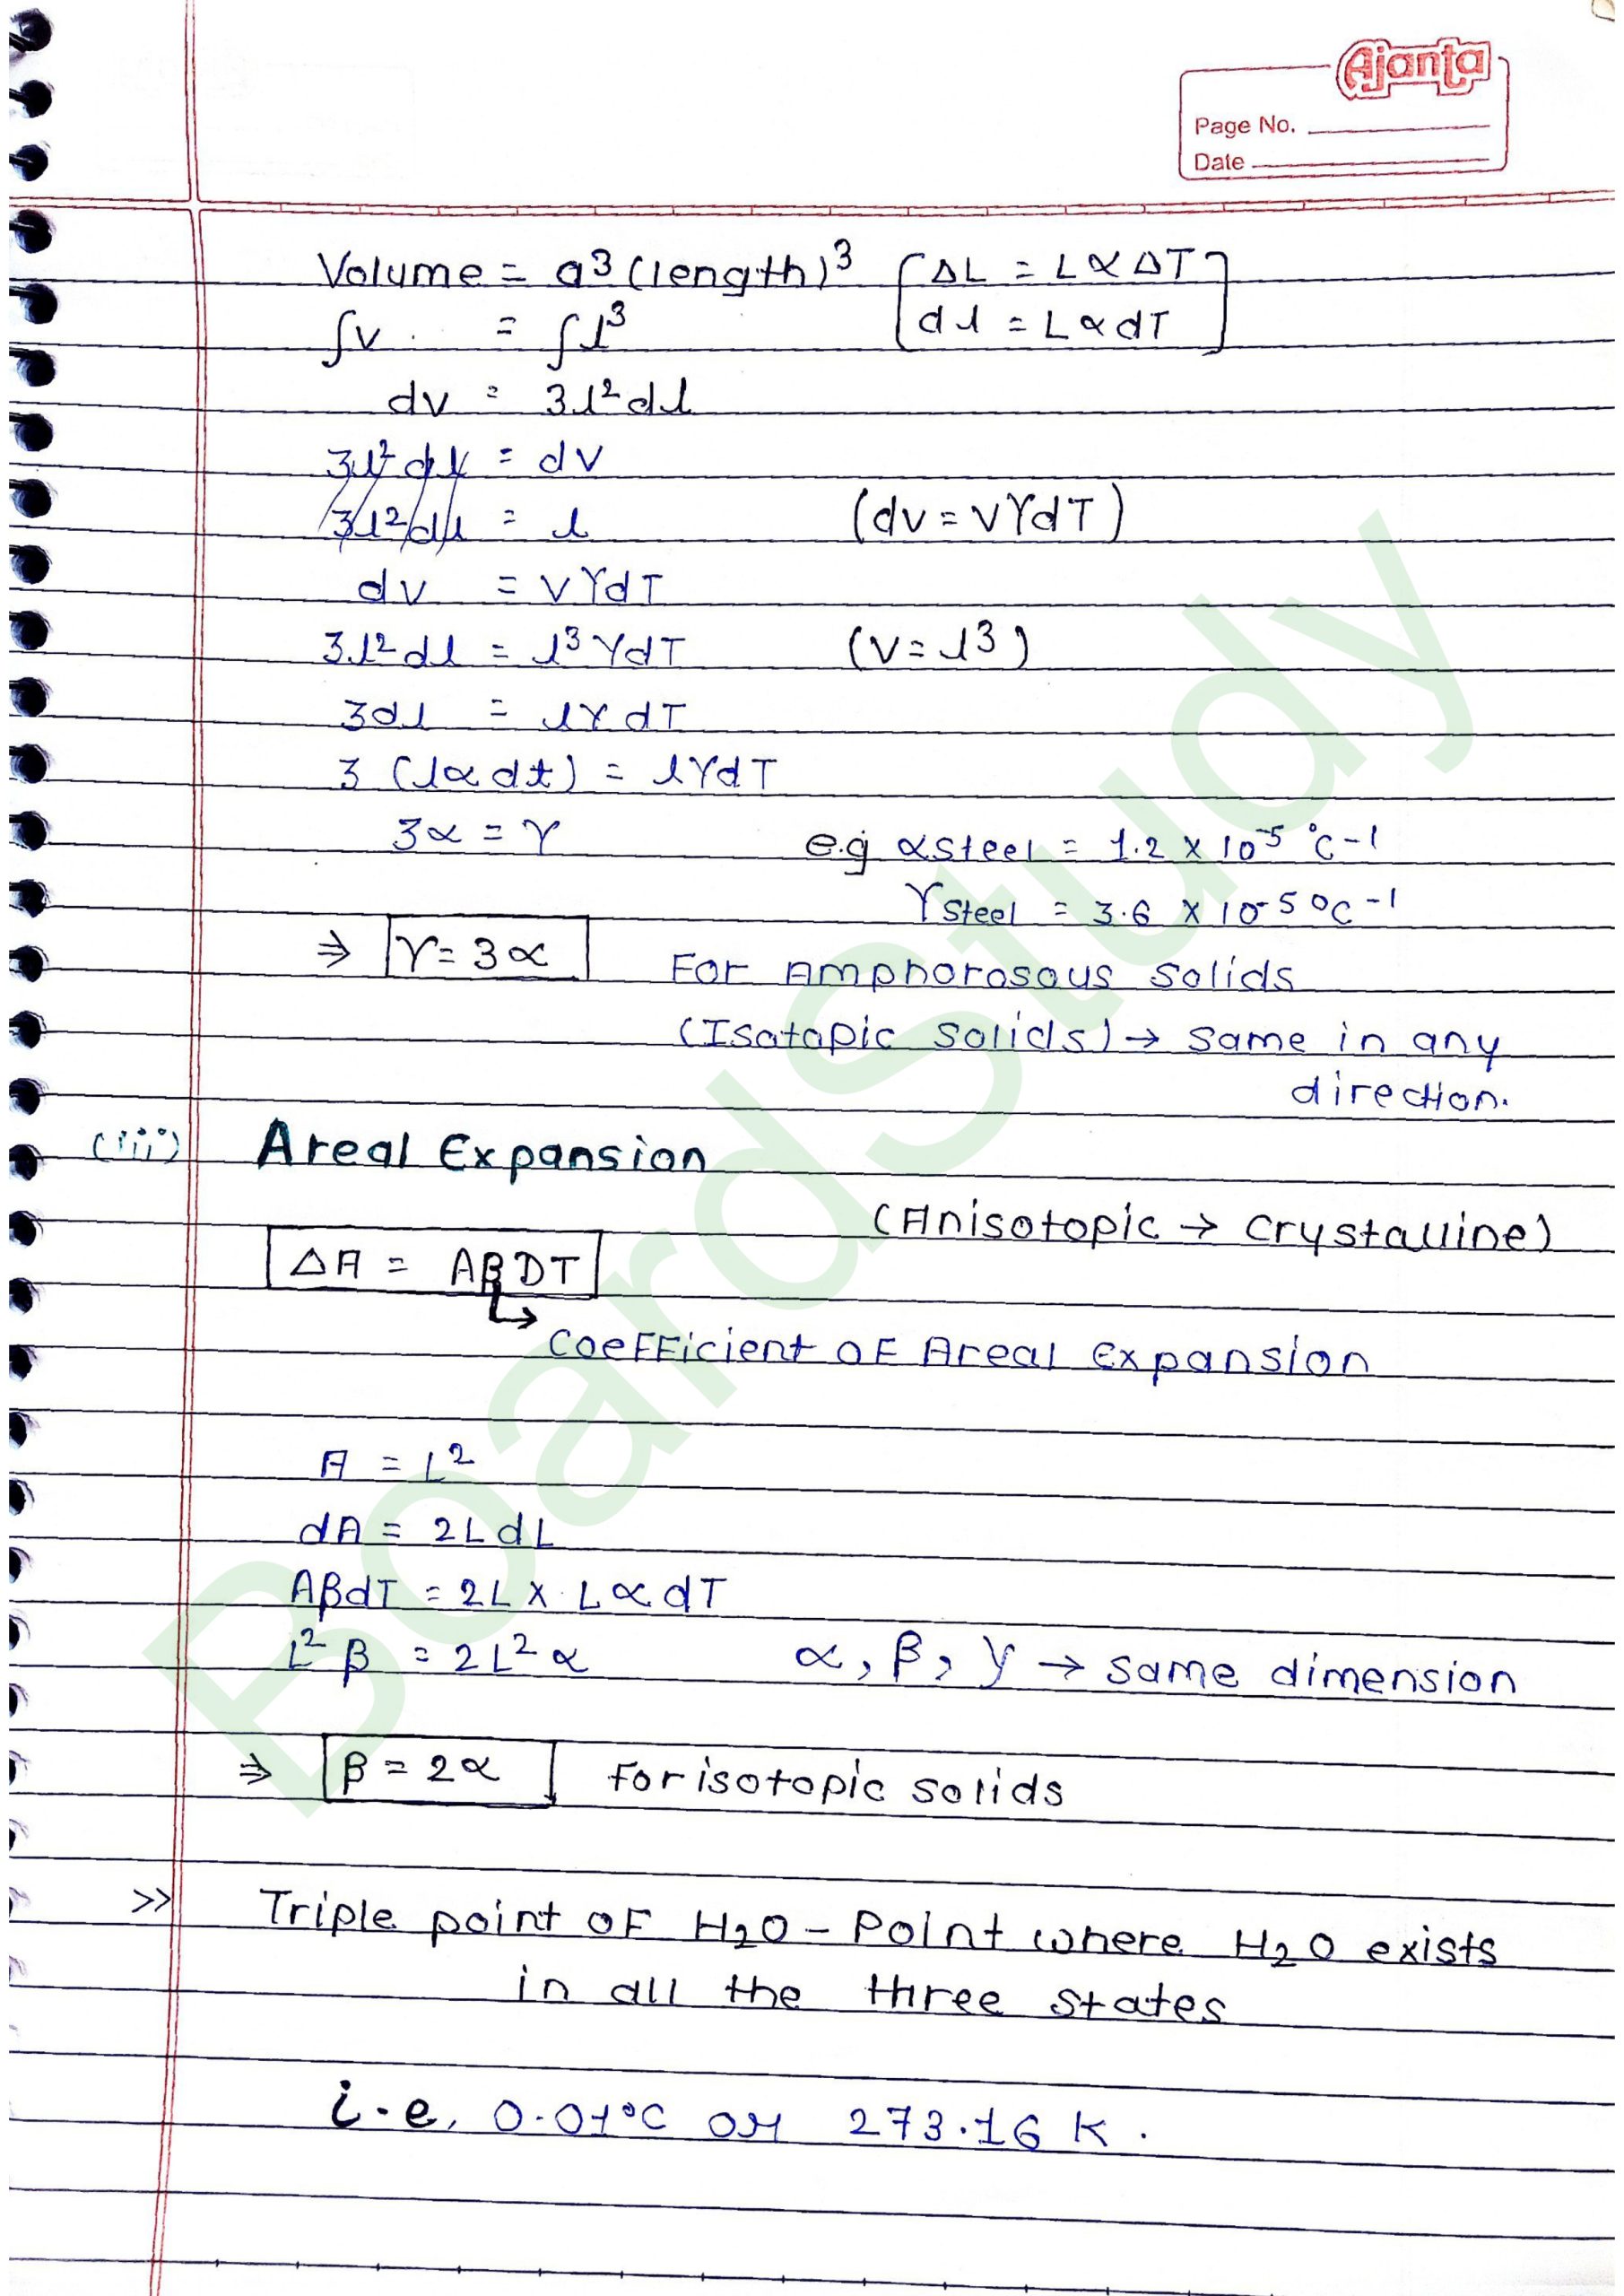 Ajanta
Page No.
Date
Volume = a³ (length)³ [ΔL = L∝ΔT
∫v = ∫l³ dl = L∝dT]
dv = 3l²dl
3l²dl = dv
3l²dl = l (dv = vγdT)
dv = vγdT
3l²dl = l³γdT (v = l³)
3dl = lγdT
3 (l∝dt) = lγdT
3∝ = γ e.g ∝steel = 1.2 × 10⁻⁵ °C⁻¹
γsteel = 3.6 × 10⁻⁵ °C⁻¹
⇒ γ = 3∝ For Amphorosous Solids
(Isotopic Solids) → same in any
direction.
(iii) Areal Expansion
(Anisotopic → Crystalline)
ΔA = AβDT
↳ Coefficient of Areal expansion
A = L²
dA = 2LdL
AβdT = 2L × L∝dT
L²β = 2L²∝ ∝, β, γ → same dimension
⇒ β = 2∝ For isotopic solids
>> Triple point of H₂O - Point where H₂O exists
in all the three states
i.e. 0.01°C or 273.16 K.
BoardStudy